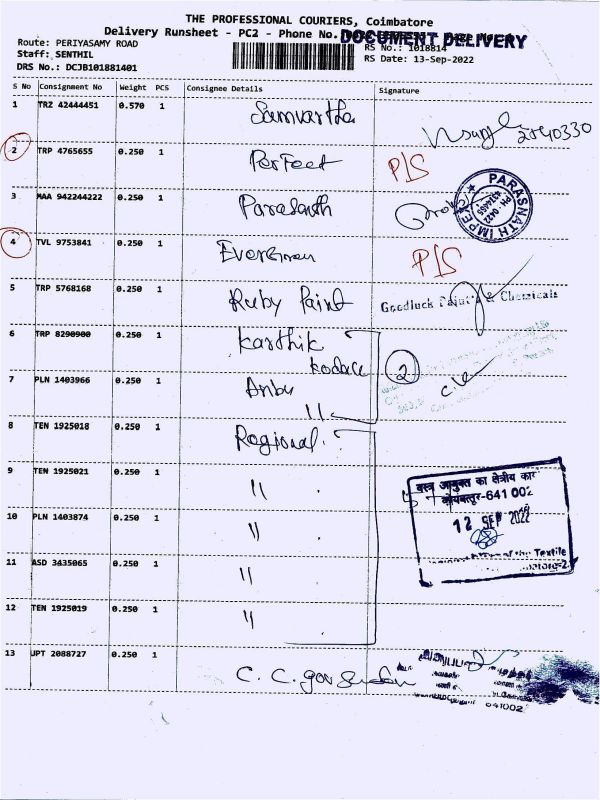 THE PROFESSIONAL COURIERS, Coimbatore
Delivery Runsheet - PC2 - Phone No.
DOCUMENT DELIVERY
Route: PERIYASAMY ROAD
RS No.: 1018814
Staff: SENTHIL
RS Date: 13-Sep-2022
DRS No.: DCJB101881401
S No Consignment No Weight PCS Consignee Details Signature
1 TRZ 42444451 0.570 1 Samvartha
2 TRP 4765655 0.250 1 Perfect P/S
3 MAA 942244222 0.250 1 Parasnath PARASNATH IMPEX
4 TVL 9753841 0.250 1 Evergreen P/S
5 TRP 5768168 0.250 1 Ruby Paint Goodluck Paints & Chemicals
6 TRP 8290900 0.250 1 Karthik
2
7 PLN 1403966 0.250 1 Anbu
"
8 TEN 1925018 0.250 1 Regional
9 TEN 1925021 0.250 1 "
वस्त्र आयुक्त का क्षेत्रीय कार
कोयम्बत्तूर-641 002
10 PLN 1403874 0.250 1 "
12 SEP 2022
of the Textile
11 ASD 3435065 0.250 1 "
12 TEN 1925019 0.250 1 "
13 JPT 2088727 0.250 1 C. C.
641002